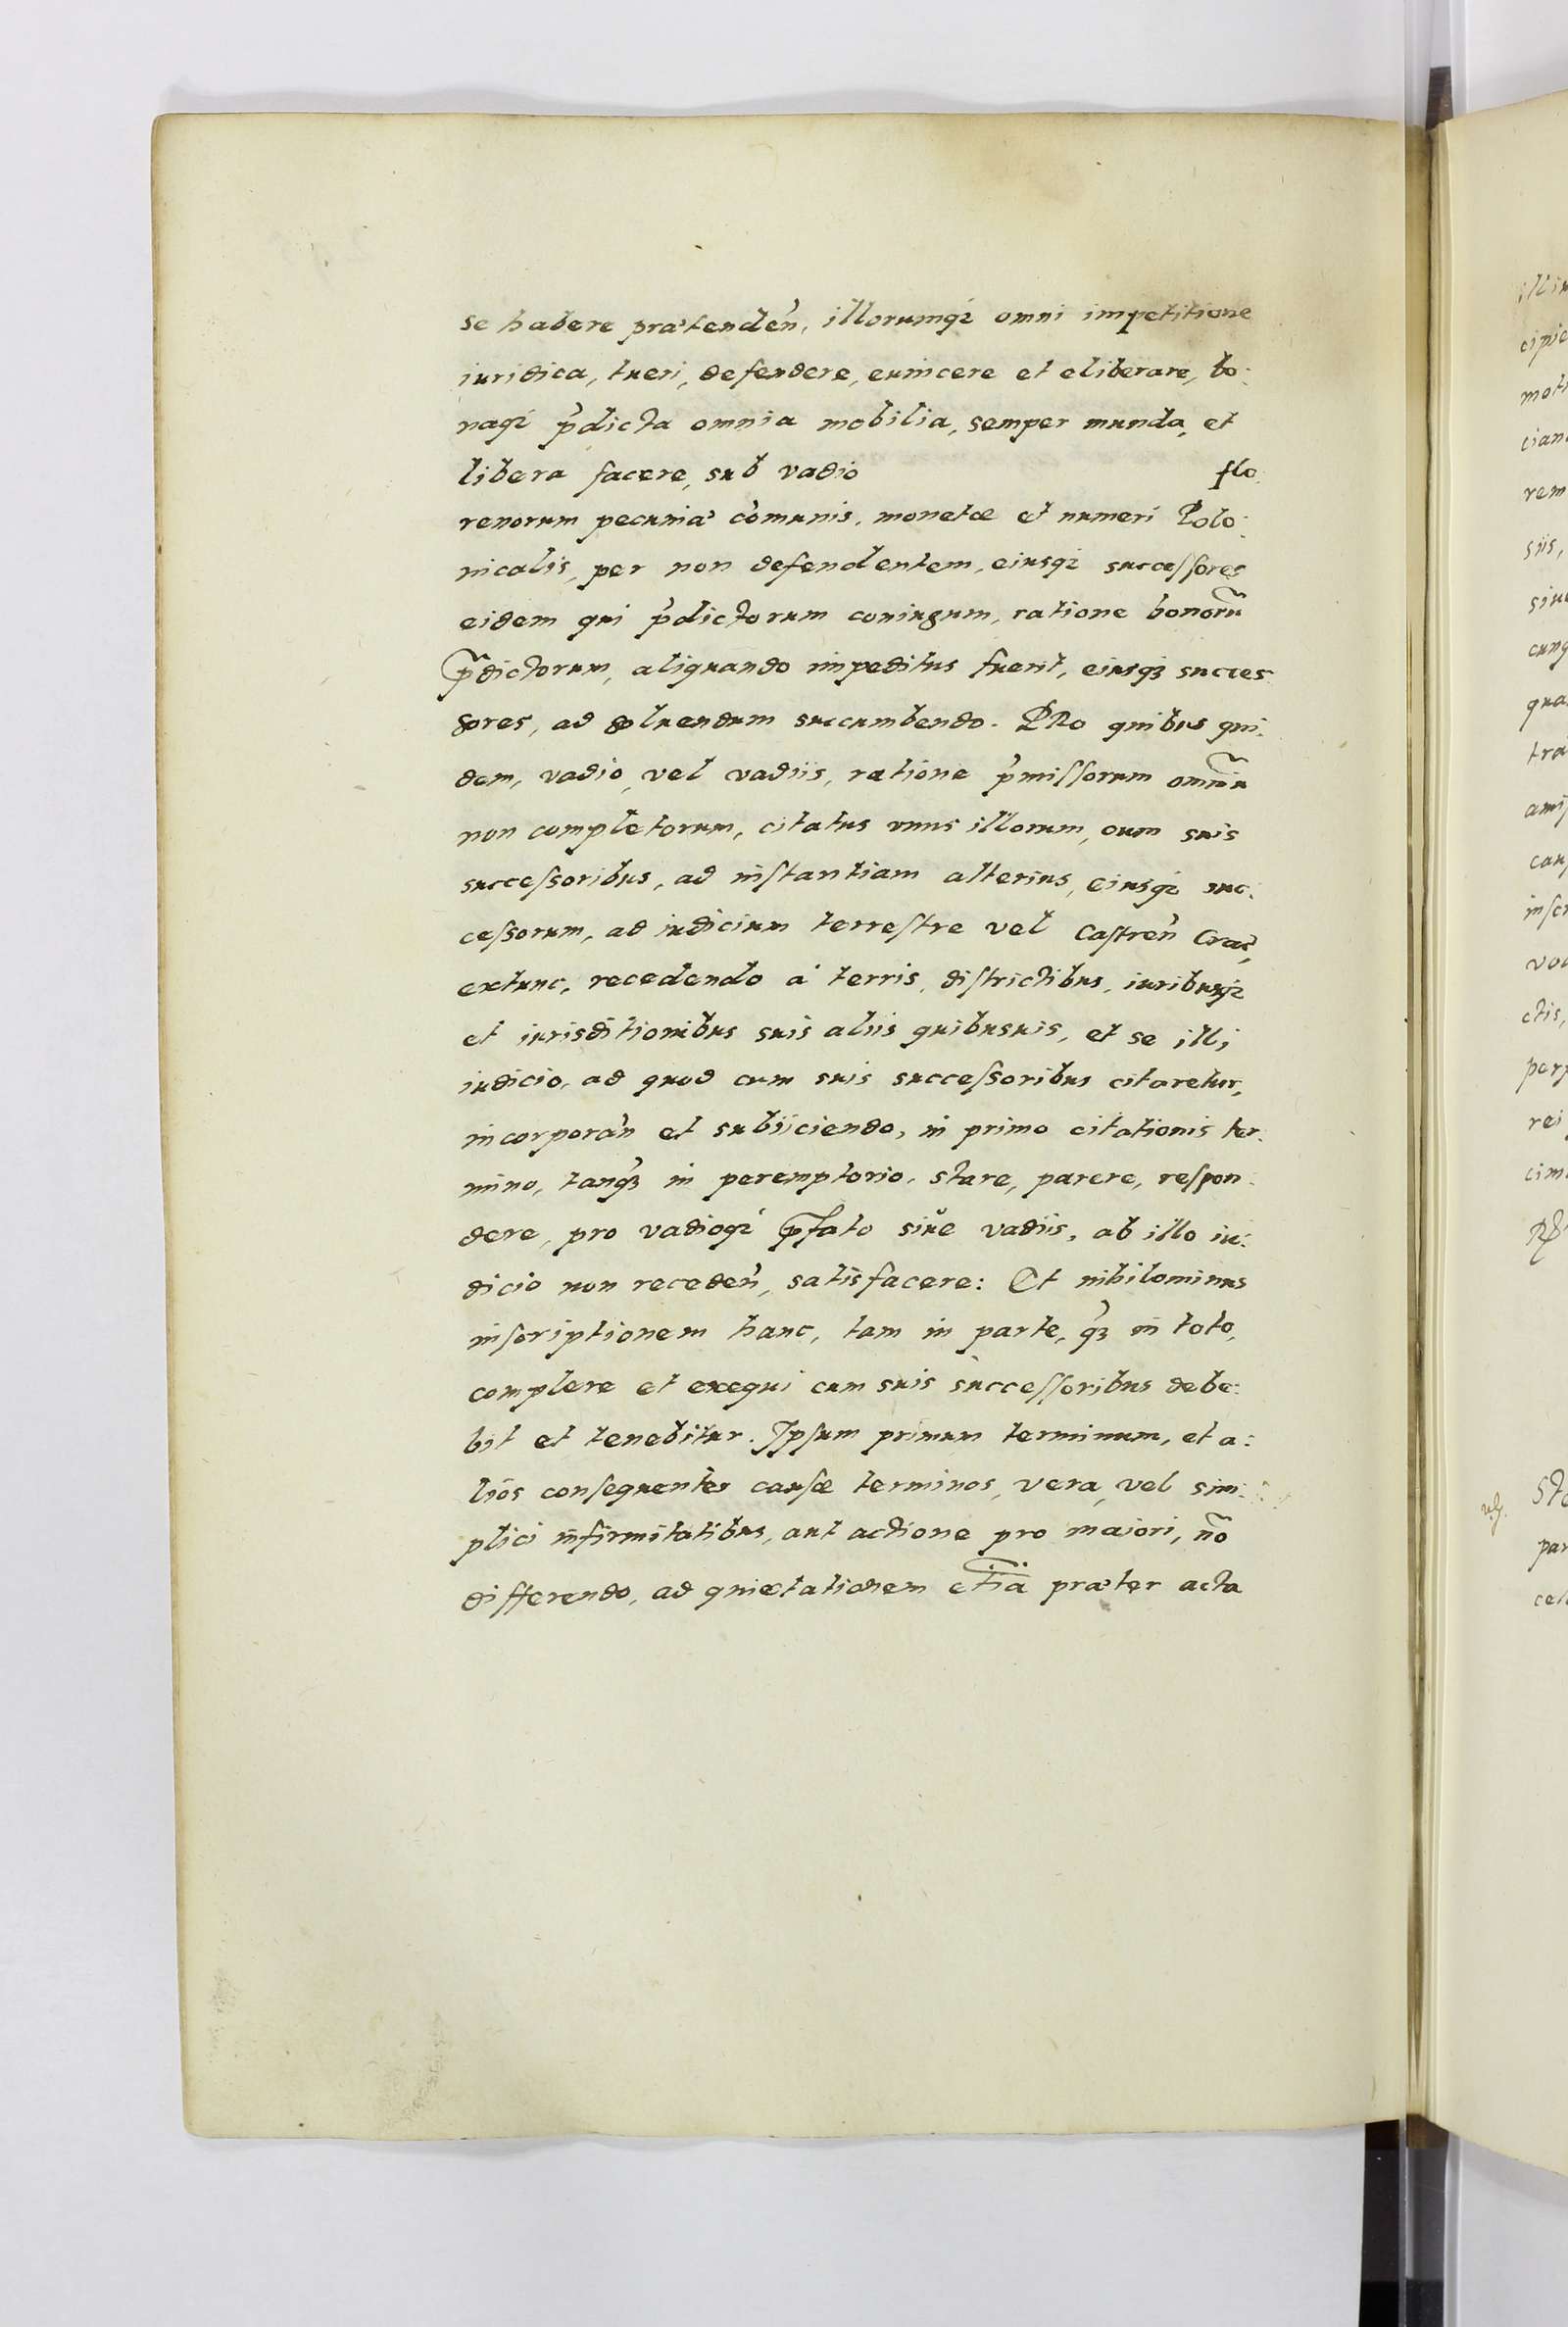 se habere prætendeñ, illorumqꝫ omni impetitione
iuridica, tueri, defendere, euincere et eliberare, bo:
naqꝫ p̃dicta omnia mobilia, semper munda, et
libera facere, sub vadio flo:
renorum pecuniæ cõmunis, monetæ et numeri Polo:
nicalis, per non defendentem, eiusqꝫ succeſſores
eidem qui p̃dictorum coniugum, ratione bonorũ
p̃dictorum, aliquando impeditus fuerit, eiusqꝫ succes
sores, ad soluendum succumbendo. PRo quibus qui:
dem, vadio, vel vadiis, ratione p̃miſſorum omniũ
non completorum, citatus vnus illorum, cum suis
succeſsoribus, ad inſtantiam alterius, eiusqꝫ suc:
ceſsorum, ad iudicium terreſtre vel Caſtreñ Crac̃,
extunc, recedendo à terris, diſtrictibus, iuribusqꝫ
et iurisditionibus suis aliis quibusuis, et se illi
iudicio, ad quod cum suis succeſsoribus citaretur,
incorporañ et subiiciendo, in primo citationis ter:
mino, tanqꝫ in peremptorio, stare, parere, reſpon:
dere, pro vadioqꝫ p̃fato siue vadiis, ab illo iu:
dicio non recedeñ, satisfacere: Et nihilominus
inſcriptionem hanc, tam in parte, qꝫ in toto,
complere et exequi cum suis succeſſoribus debe:
bit et tenebitur. Ipſum primum terminum, et a:
lios conſequentes cauſæ terminos, vera, vel sim:
plici infirmitatibus, aut actione pro maiori, ño
differendo, ad quietationem etiã præter acta